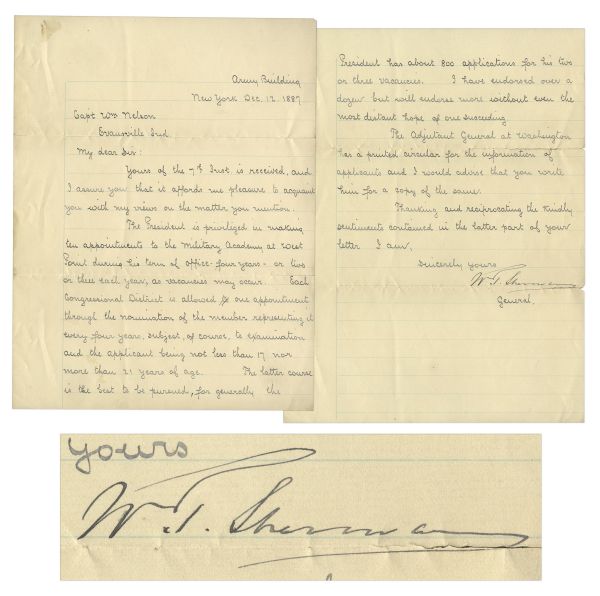 Army Building
New York Dec. 12. 1887
Capt Wm Nelson
Evansville Ind.
My dear Sir:
Yours of the 7th Inst is received, and
I assure you that it affords me pleasure to acquaint
you with my views on the matter you mention.
The President is privileged in making
ten appointments to the Military Academy at West
Point during his term of office - four years - or two
or three each year, as vacancies may occur. Each
Congressional District is allowed one appointment
through the nomination of the member representing it
every four years, subject, of course, to examination
and the applicant being not less than 17 nor
more than 21 years of age. The latter course
is the best to be pursued, for generally the
President has about 800 applications for his two
or three vacancies. I have endorsed over a
dozen but will endorse more without even the
most distant hope of one succeeding.
The Adjutant General at Washington
has a printed circular for the information of
applicants and I would advise that you write
him for a copy of the same.
Thanking and reciprocating the kindly
sentiments contained in the latter part of your
letter I am,
Sincerely yours
W. T. Sherman
General.
yours
W. T. Sherman